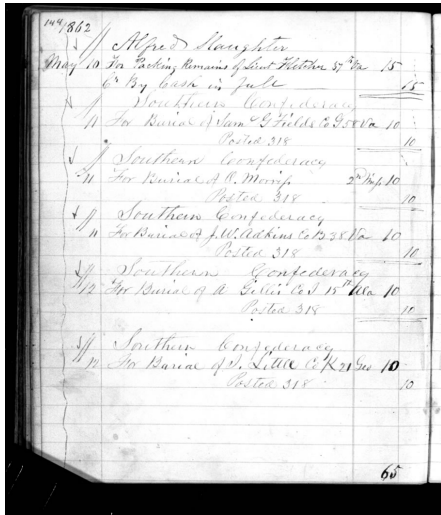 144/1862
Alfred Slaughter
May 10 For Packing Remains of Lieut Fletcher 57th Va 15
Cr By Cash in full 15
Southern Confederacy
11 For Burial of Saml G Fields Co G 58 Va 10
Posted 318 10
Southern Confederacy
11 For Burial of R. Morriss 2nd Miss 10
Posted 318 10
Southern Confederacy
11 For Burial of J. W. Adkins Co B 38 Va 10
Posted 318 10
Southern Confederacy
12 For Burial of A Gillis Co I 15th Ala 10
Posted 318 10
Southern Confederacy
12 For Burial of J. Little Co K 21 Geo 10
Posted 318 10
65